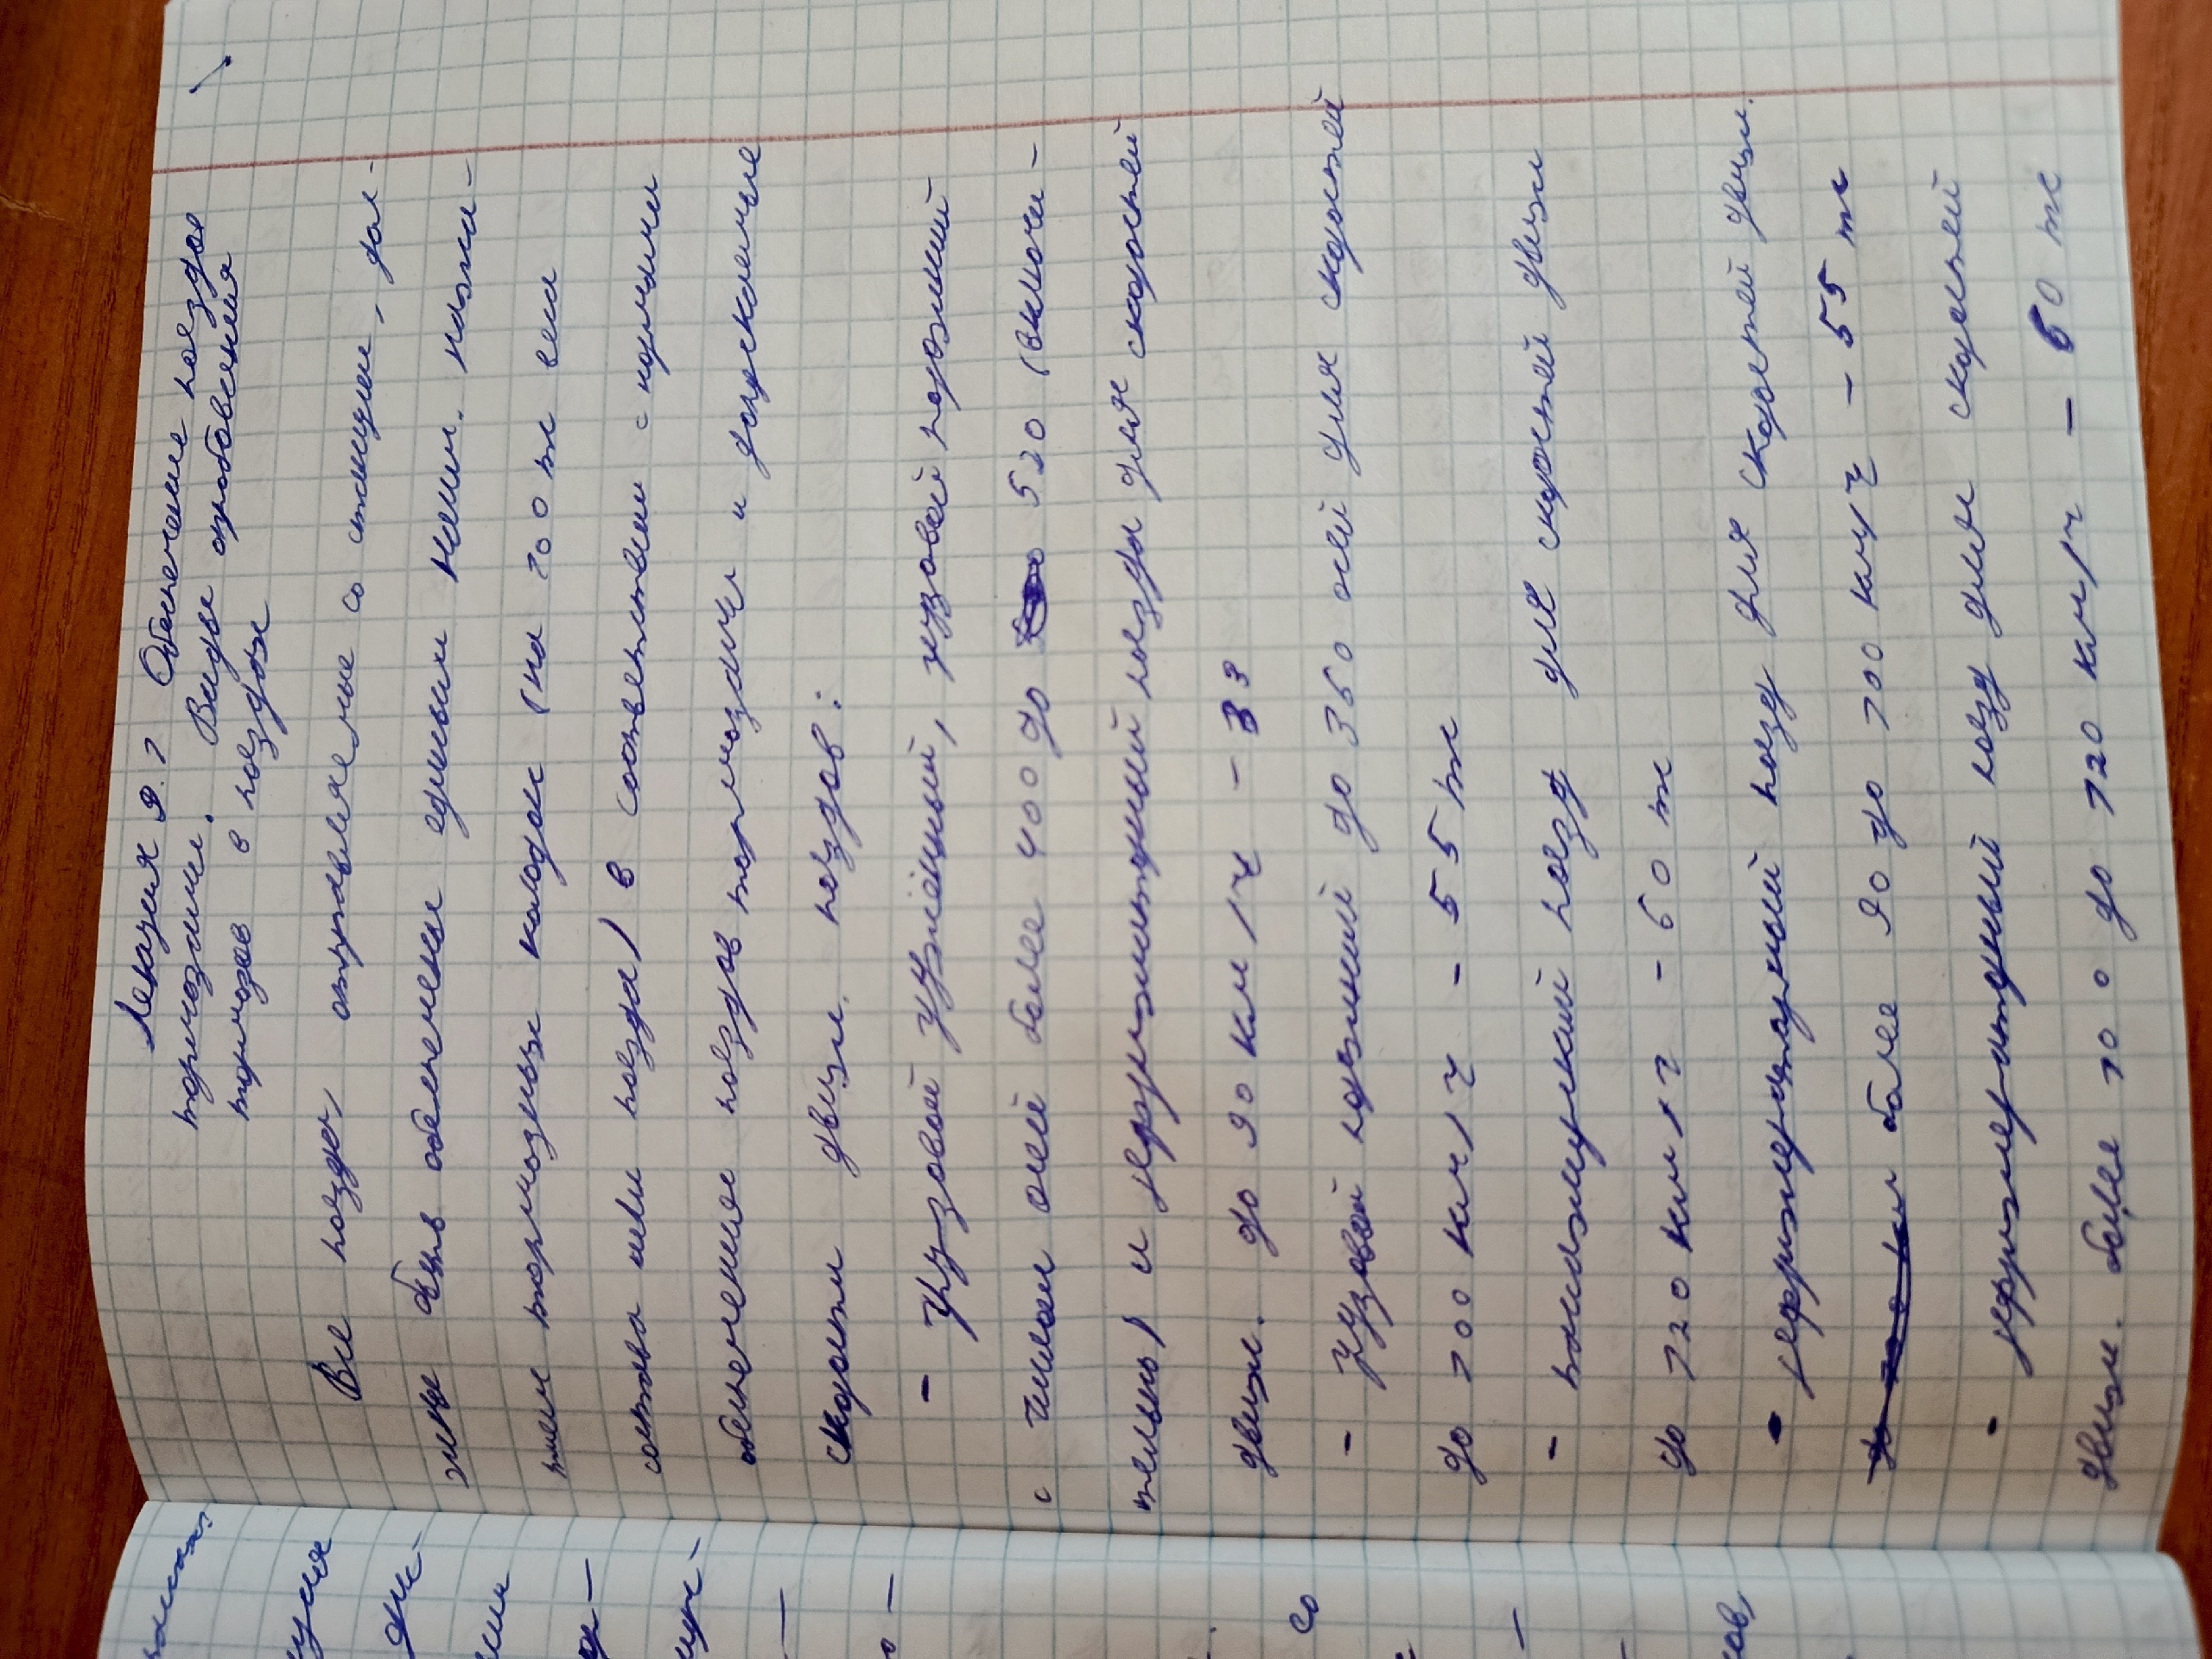 Лекция 9.1 Обеспечение поездов
тормозами. Виды опробования
тормозов в поездах
Все поезда, отправляемые со станции, дол-
жны быть обеспечены единым наим. нажа-
тием тормозных колодок (на 100 т веса
состава или поезда) в соответствии с нормами
обеспечения поездов тормозами и допускаемые
скорости движ. поездов:
- грузовой гружёный, грузовой порожний
с числом осей более 400 до 520 (включи-
тельно) и рефрижераторный поезда для скоростей
движ. до 90 км/ч - 33
- грузовой порожний до 350 осей для скоростей
до 100 км/ч - 55 тс
- пассажирский поезд для скоростей движ
до 120 км/ч - 60 тс
- рефрижераторный поезд для скоростей движ.
более 90 до 100 км/ч - 55 тс
- рефрижераторный поезд для скоростей
движ. более 100 до 120 км/ч - 60 тс
со